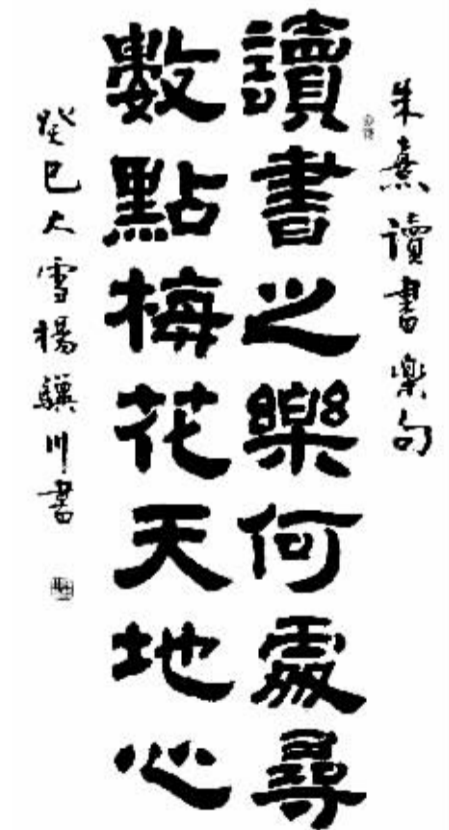 朱熹讀書樂句
讀書之樂何處尋
數點梅花天地心
癸巳大雪楊驥川書